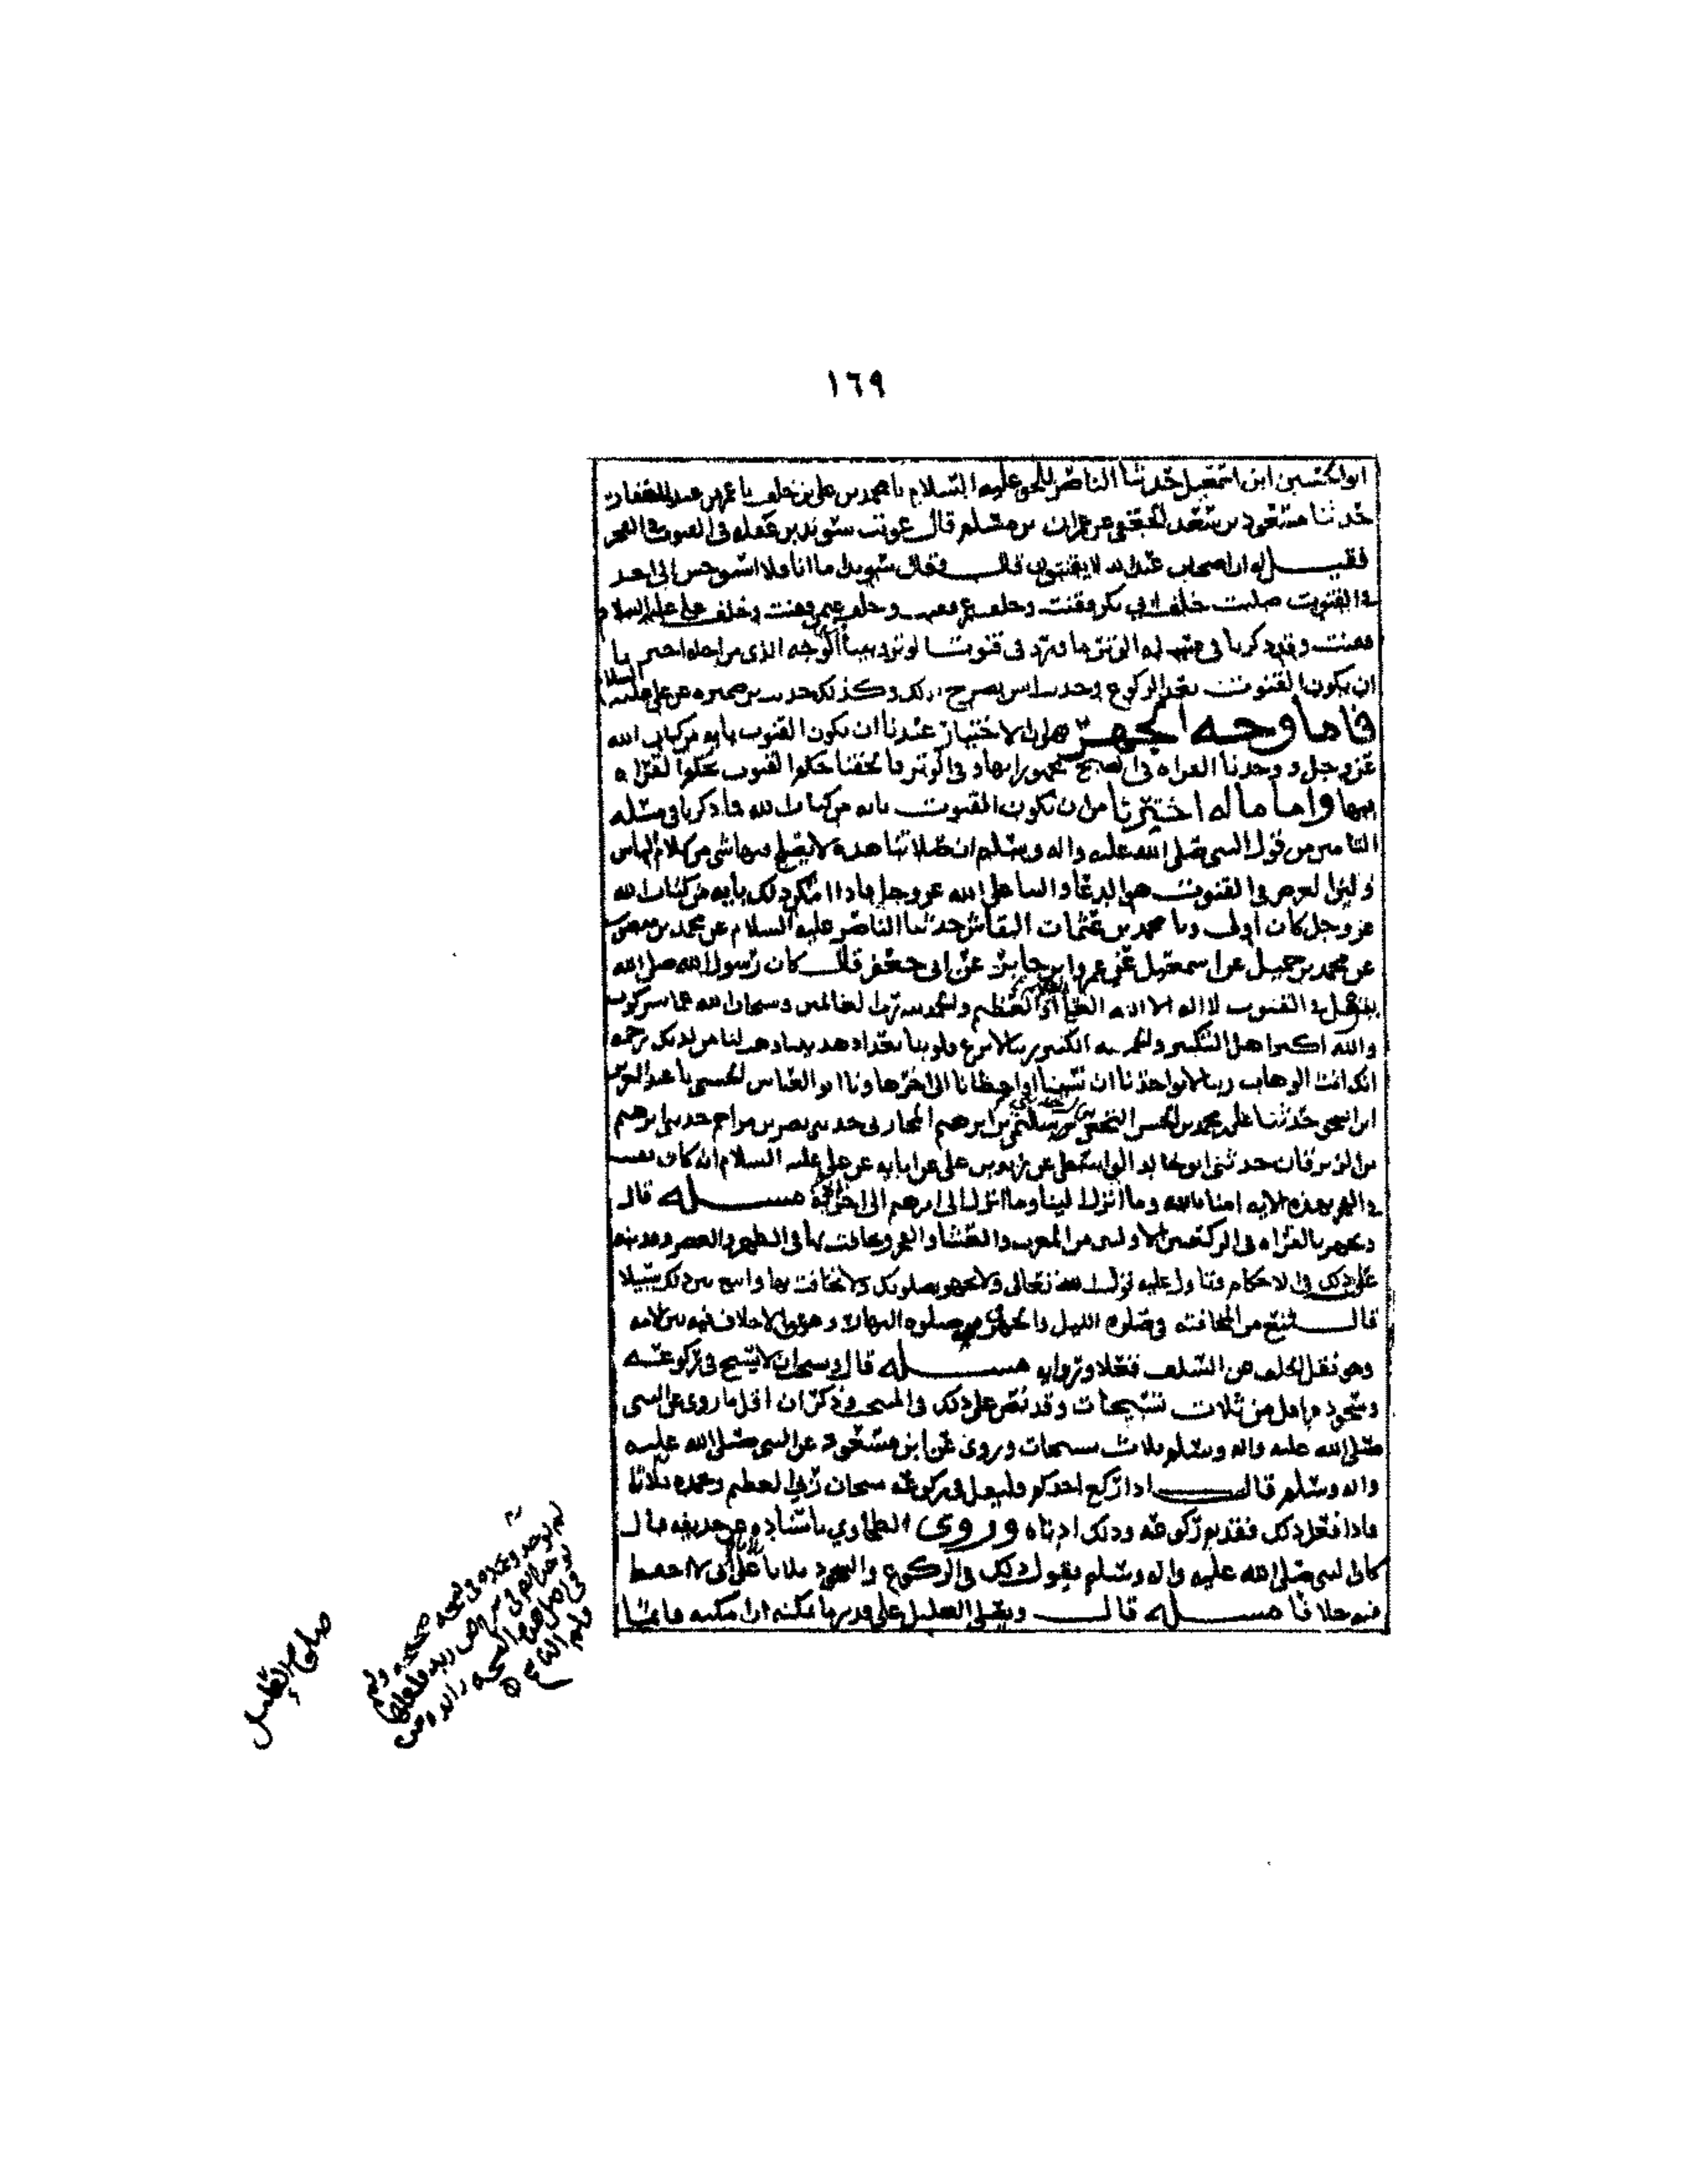 ١٦٩
ابو الحسين ابن اسمعيل حدثنا الناصر للحق عليه السلام نا محمد بن علي بن خلف نا عمر بن عبد الغفار
حدثنا مسعود بن سعد الجعفي عن عمران بن مسلم قال عوتب سويد بن غفله في القنوت في الفجر
فقيل له ان اصحاب عبدالله لا يقنتون قال فقال سويد اما انا فلا استوحش الى احد
في القنوت صليت خلف ابي بكر وقنت وخلف عمر فقنت وخلف عثمن وقنت وخلف علي عليه السلام
فقنت وقد ذكرنا في مسله الوتر ما ورد في قنوت الوتر وبينا الوجه الذي من اجله اخترنا
ان يكون القنوت بعد الركوع وحديث انس يصرح بذلك وكذلك حديث بن ضميره عن علي عليه السلام
فاما وجه الجهر فهو ان الاختيار عندنا ان يكون القنوت بايه من كتاب الله
عز وجل ووجدنا القراه في الصبح مجهورا بها وفي الوتر فالحقنا حكم القنوت بحكم القراه
فيها واما ماله اخترنا من ان يكون القنوت بايه من كتاب الله فما ذكرنا في مسله
التامين من قول النبي صلى الله عليه واله وسلم ان صلاتنا هذه لا يصلح فيها شي من كلام الناس
وليس الغرض في القنوت هو الدعا والثنا على الله عز وجل فاذا امكن ذلك بايه من كتاب الله
عز وجل كان اولى ونا محمد بن عثمان النقاش حدثنا الناصر عليه السلام عن محمد بن منصور
عن محمد بن جميل عن اسمعيل عن عمرو ابن جابر عن ابي جعفر قال كان رسول الله صلى الله
يقول في القنوت لا اله الا الله العلي العظيم والحمد لله رب العالمين وسبحان الله عما يشركون
والله اكبر اهل التكبير والحمد لله الكبير ربنا لا تزغ قلوبنا بعد اذ هديتنا وهب لنا من لدنك رحمه
انك انت الوهاب ربنا لا تواخذنا ان نسينا او اخطانا الى اخرها ونا ابو العباس الحسني نا عبد العزيز
ابن اسحق حدثنا علي بن محمد بن الحسن النخعي سليمن بن ابرهيم المحاربي حدثني نصر بن مزاحم حدثني ابرهيم
بن الزبرقان حدثني ابو خالد الواسطي عن زيد بن علي عن ابايه عن علي عليه السلام انه كان يقنت
في الفجر بهذه الايه امنا بالله وما انزل الينا وما انزل الى ابرهيم الى اخر الايه مسله قال
ويجهر بالقراه في الركعتين الاولتين من المغرب والعشا والفجر ويخافت بها في الظهر والعصر وقد نبه
على ذلك في الاحكام وتاول عليه قول الله تعالى ولا تجهر بصلوتك ولا تخافت بها وابتغ بين ذلك سبيلا
قال فمنع من المخافته في صلوه الليل والجهر في صلوه النهار وهو مما لا خلاف فيه بين الامه
وهو نقل الخلف عن السلف فعلا ورواية مسله قال ويستحب ان لا يسبح في ركوعه
وسجوده باقل من ثلاث تسبيحات وقد نص على ذلك في المنتخب وذكر ان اقل ما روي عن النبي
صلى الله عليه واله وسلم ثلاث تسبيحات وروي عن ابن مسعود عن النبي صلى الله عليه
واله وسلم قال اذا ركع احدكم فليقل في ركوعه سبحان ربي العظيم وبحمده ثلاثا
فاذا فعل ذلك فقد تم ركوعه وذلك ادناه وروى الطحاوي باسناده عن حذيفه قال
كان النبي صلى الله عليه واله وسلم يقول ذلك في الركوع والسجود ثلاثا على اني لا احفظ
فيه خلافا مسله قال ويصلي العليل على قدر ما يمكنه ان امكنه قايما
صلوة العليل